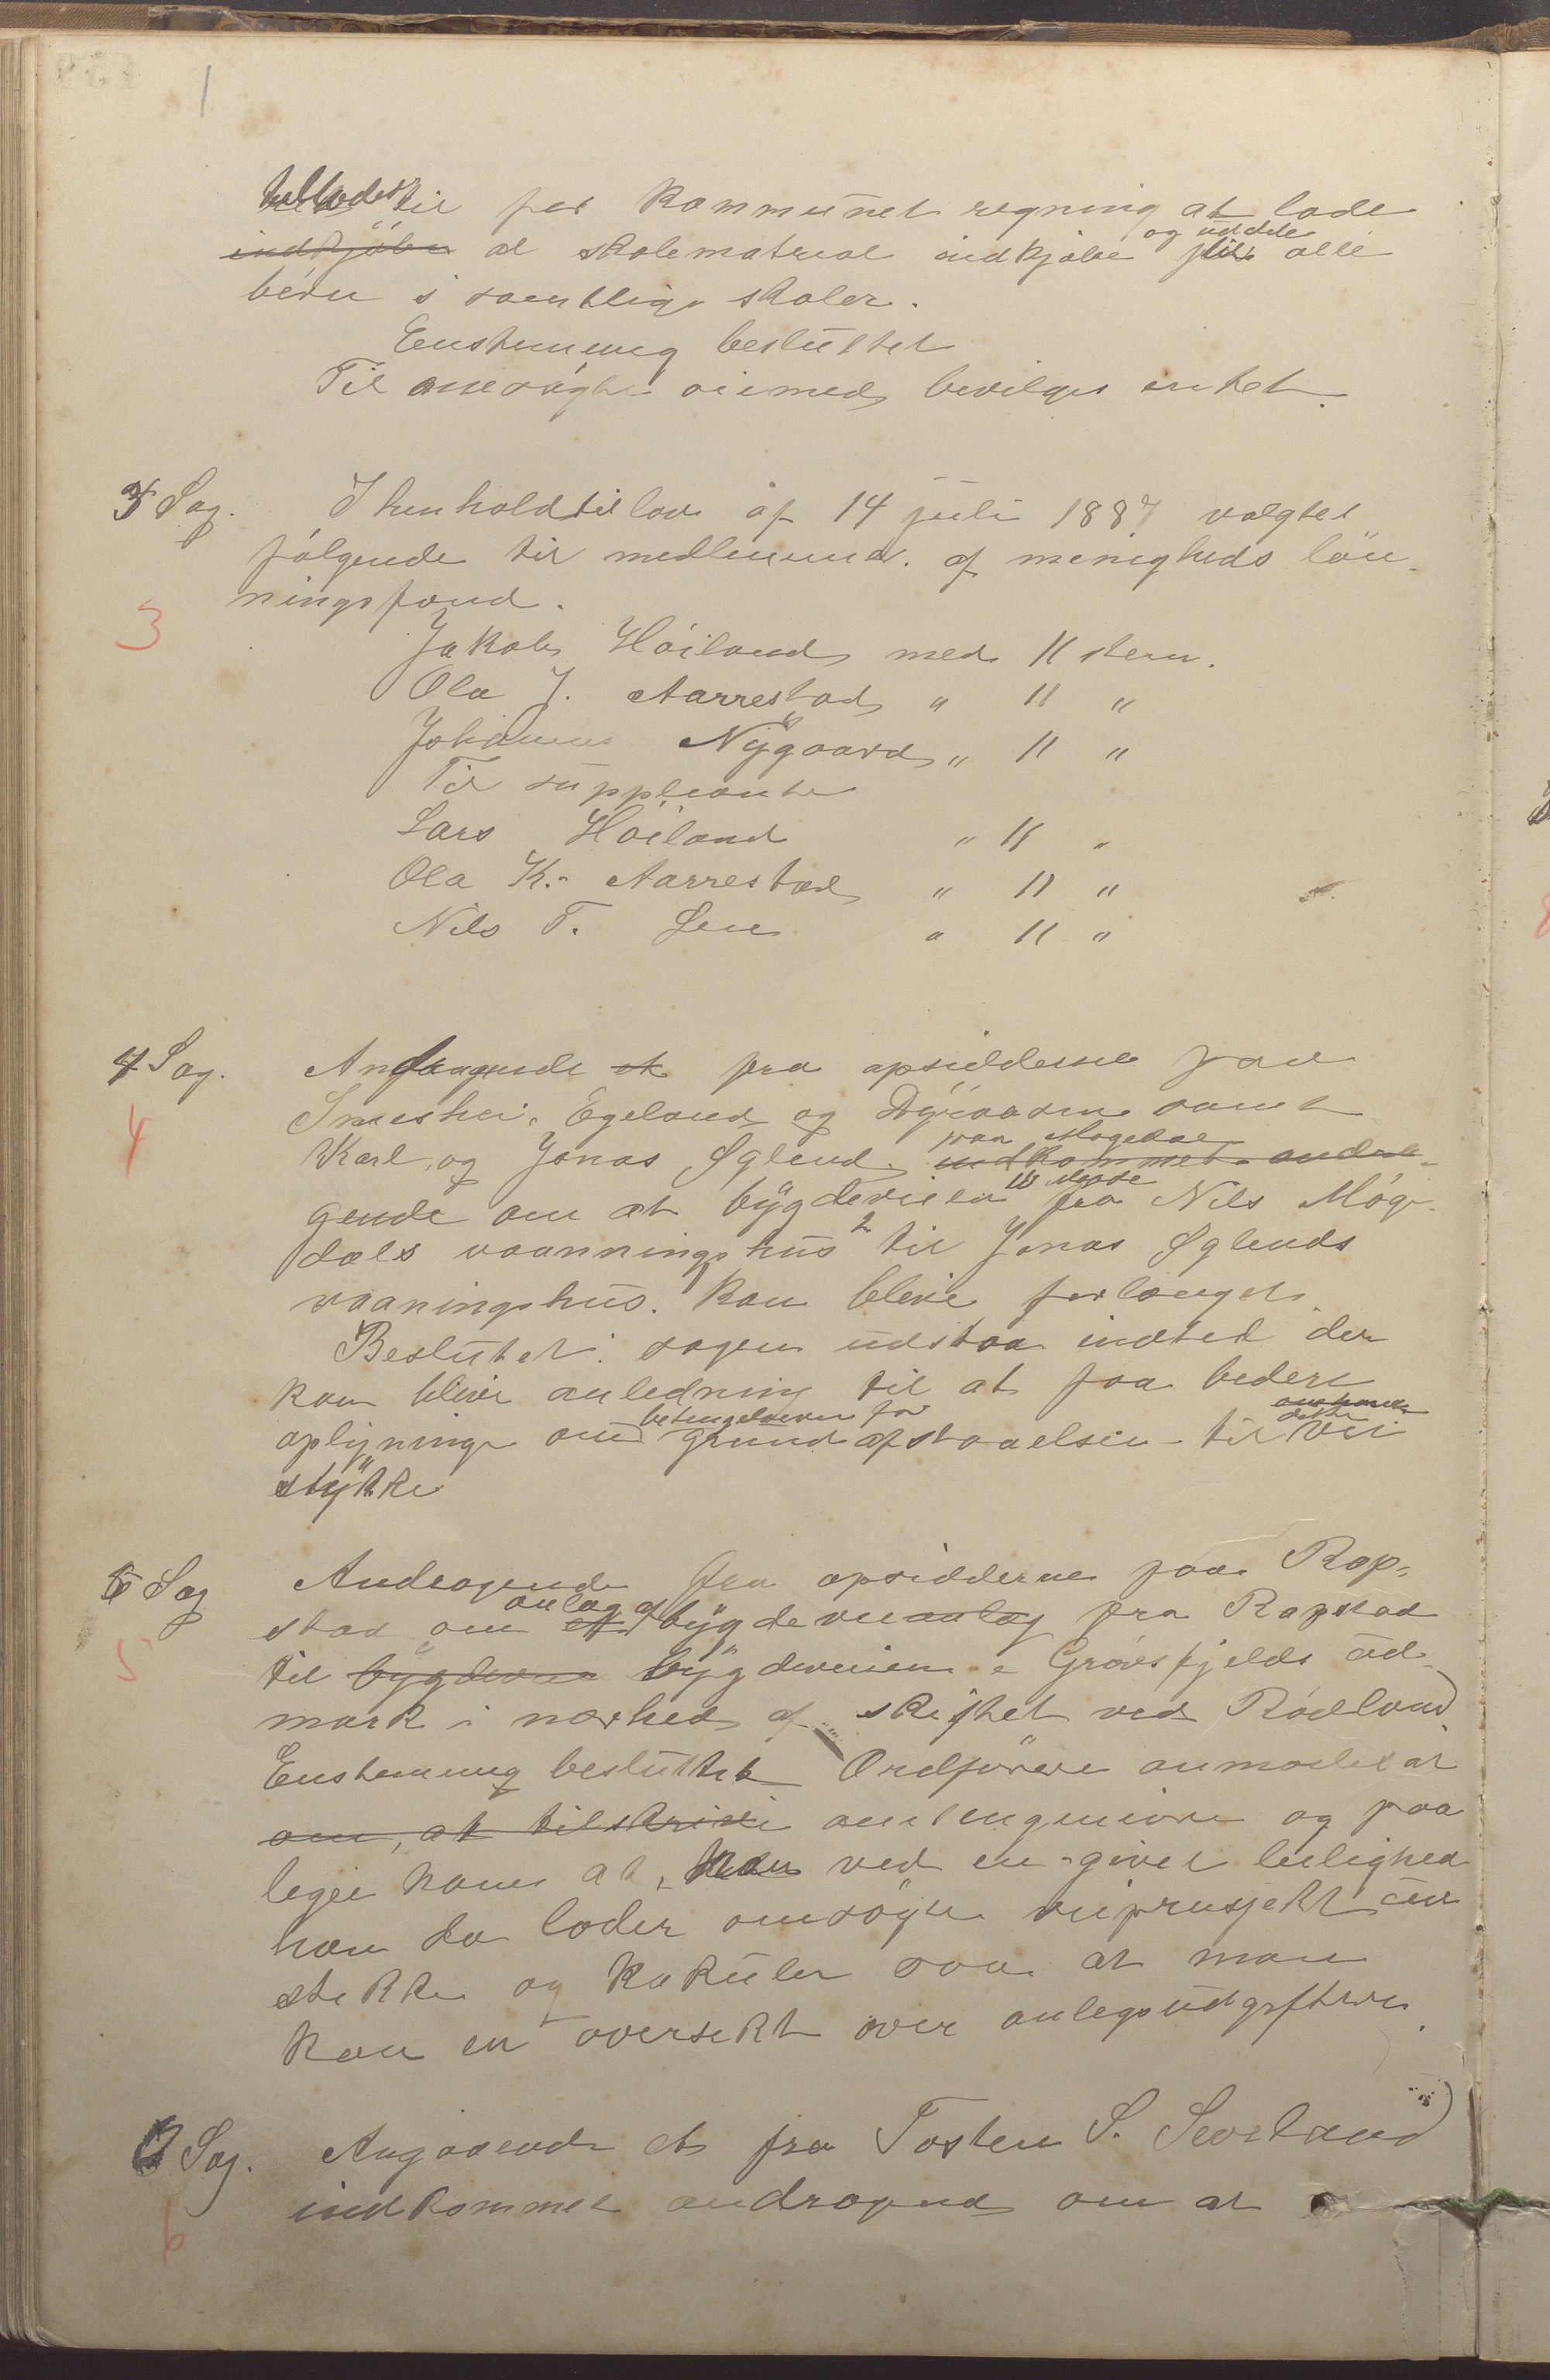 1
tillades til for Kommunet regning at lade
indkjöbe al skolematrial indkjöbe og uddele til alle
börn i samtlige skoler.
Enstemmig besluttet
Til ansøgte öiemed bevilges intet.
3 Sag. I henhold til lov af 14 juli 1887 valgtes
følgende til medlemmer. af menigheds lön-
ningsfond.
3
Jakob Höiland med 11 stem.
Ola J. Aarrestad " 11 "
Johannes Nÿgaard " 11 "
Til suppleanter
Lars Höiland " 11 "
Ola K. Aarrestad " 11 "
Nils T. Lene " 11 "
4 Sag. Andragende et fra opsidderne paa
Smeshei, Egeland og Dÿraasen samt
4
Karl og Jonas Iglend paa Mögedal indkommet andra-
gende om at bÿgdeveien fra Nils Möge-
dals vaanningshus til Jonas Iglends
vaaningshus. kan blive forlænget.
Beslutet. sagen udstaa indtil der
kan blive anledning til at faa bedere
oplÿsninge om betingelserne for grundafstaaelsen til dette vei
stÿkke
5 Sag Andragende fra opsidderne paa Rap-
stad om anlæg af bÿgdeveianlæg fra Rapstad
5
til bygdevei bÿgdeveien i Grøvsfjelds ud-
mark i nærhed af skiftet ved Rödland
Enstemmig besluttet Ordförere anmodes at
om, at tilskrive amtsingeniøre og paa
legee ham at, ved en given leilighed
han da lader omsøgte veiprosjekt ud
stikke og kakuler saa at man
kan en oversikt over anlegsudgifterne.
6 Sag. Angaaende et fra Tosten S. Sevland
indkommet andragend om at
6